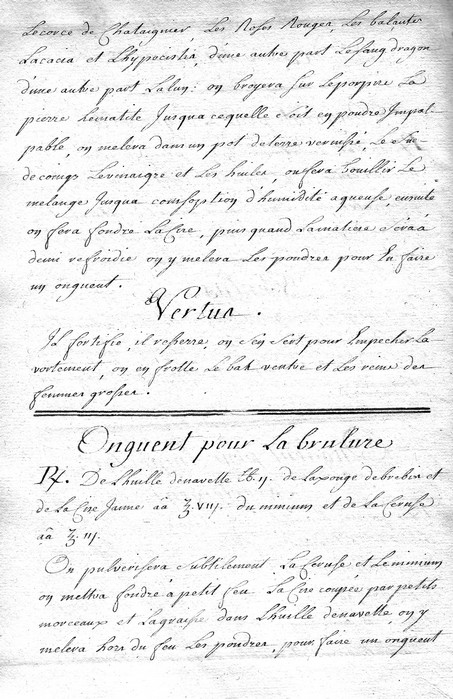 Lecorce de Chataignier, Les Roses Rouges, Les balaute
Lacacia et Lhypecistis, d'une autre part Lesang dragon
d'une autre part Lalun: on broyera sur Leporpire La
pierre hematite Jusqua cequelle soit en poudre Impal-
pable, on melera dans un pot deterre vernissé, Le Suc
decoings Levinaigre et Les huiles, on fera bouillir Le
melange Jusqua comsoption d'humidité aqueuse, ensuite
on fera fondre La Cire, puis quand Lamatiere Sera à
demi refroidie on y melera Les poudres pour En faire
un onguent.
Vertus.
Il fortifie, il resserre, on s'en sert pour Empecher La-
vortement, on en frotte Le bas ventre et Les reins des
femmes grosses.
Onguent pour La brullure
℞. De Lhuille denavette ℔.ij. de Laxonge debrebis et
de La Cire Jaune āā ℥.VIII. du minium et de La Ceruse
āā ℥.III.
On pulverisera Subtilement La Ceruse et Le minium
on mettra fondre à petit feu La Cire coupée par petits
morceaux et Lagraisse dans Lhuille denavette on y
melera hors du feu Les poudres, pour faire un onguent